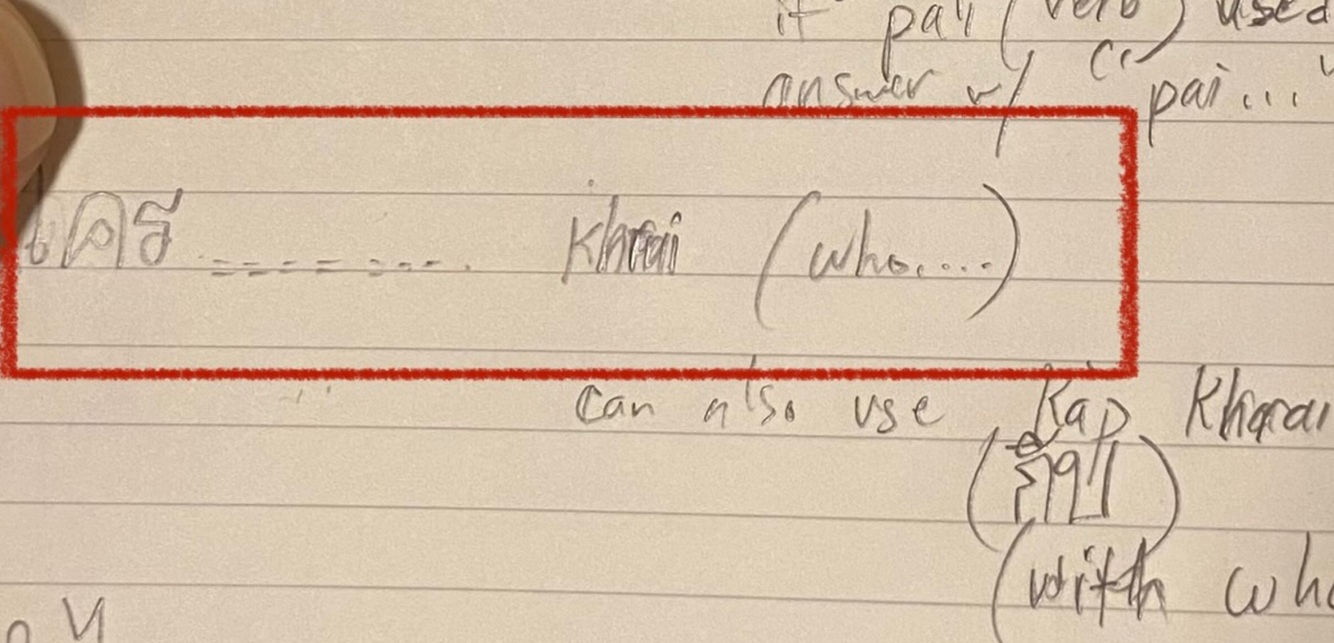 if pai (verb) used
answer w/ " pai... "
ใคร ........ Khrai (who....)
can also use Kap Khrai
(กับ)
(with who